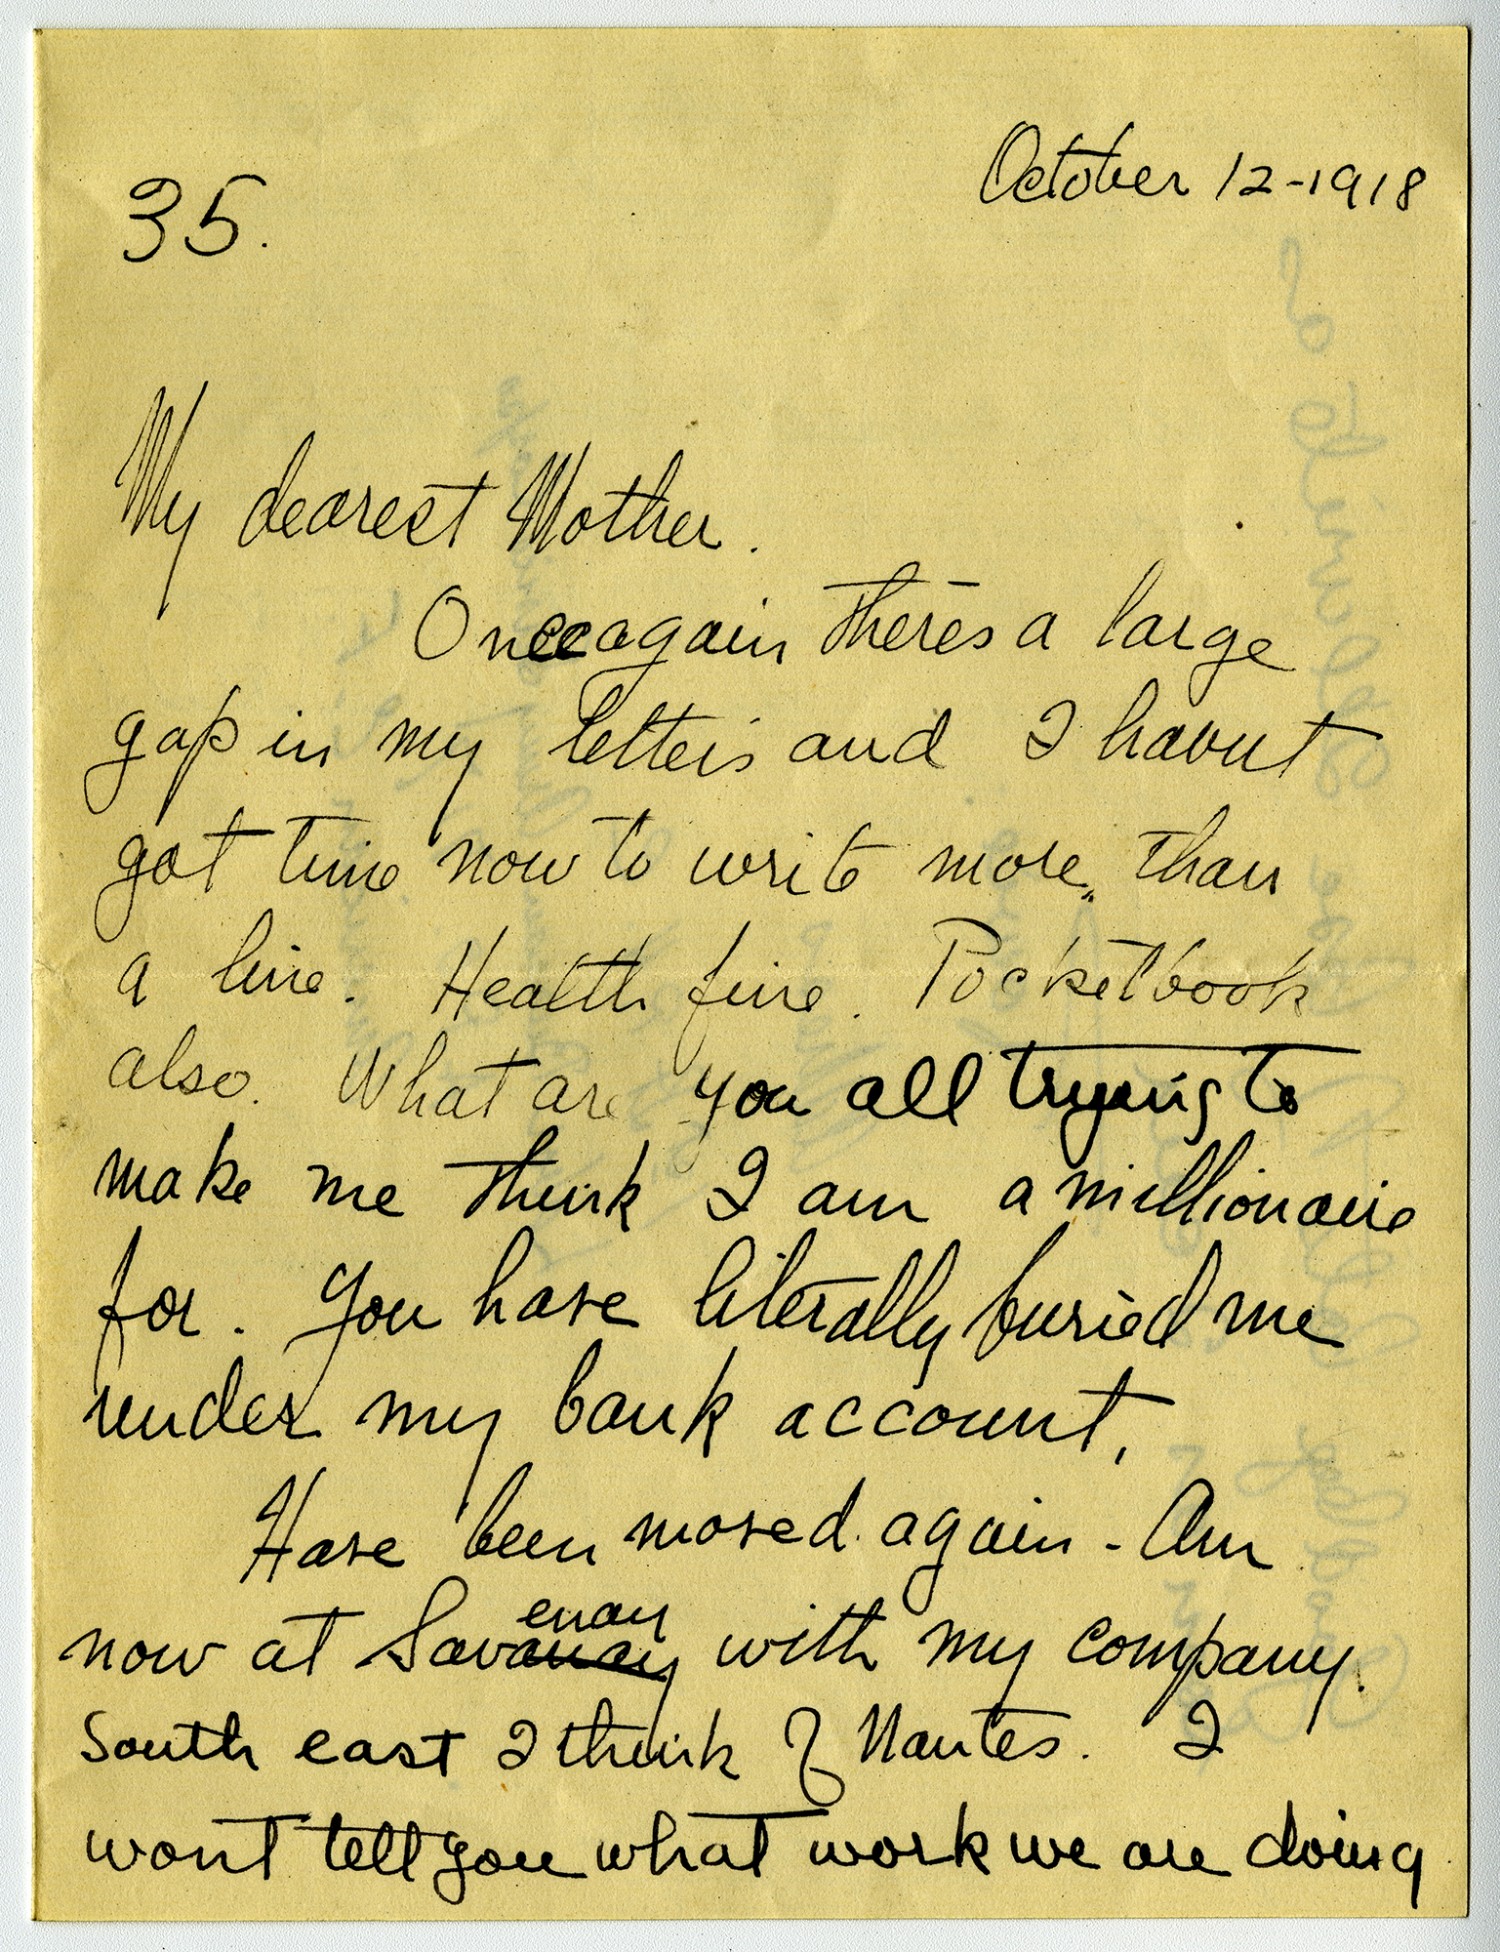 October 12-1918
35.
My dearest Mother.
Once again there's a large
gap in my letters and I havnt
got time now to write more than
a line. Health fine. Pocketbook
also. What are you all trying to
make me think I am a millionaire
for. You have literally buried me
under my bank account.
Have been moved again - Am
enay
now at Savanay with my company.
South east I think of Nantes. I
wont tell you what work we are doing